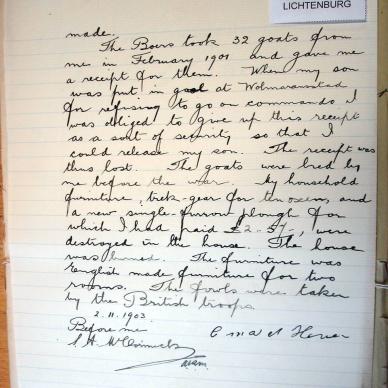 LICHTENBURG
made.
The Boers took 32 goats from
me in February 1901 and gave me
a receipt for them. When my son
was put in gaol at Wolmaransstad
for refusing to go on commando I
was obliged to give up this receipt
as a sort of security so that I
could release my son. The receipt was
thus lost. The goats were bred by
me before the war. My household
furniture, trek-gear for ten oxen, and
a new single-furrow plough for
which I had paid £2-5/-, were
destroyed in the house. The house
was burned. The furniture was
English made furniture for two
rooms. The fowls were taken
by the British troops.
2.11.1903.
Before me